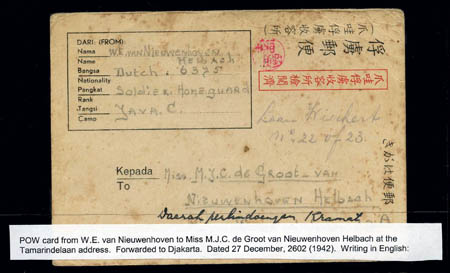 DARI: (FROM)
Name W.E. van Nieuwenhoven
Name Helbach
Bangsa Dutch. 6375
Nationality
Pangkat Soldier Homeguard
Rank
Tangsi JAVA. C.
Camp
俘虜郵便
(爪哇俘虜收容所)
爪哇俘虜收容所檢閱濟
Laan Wiechert
No 22 of 23.
きがは便郵
Kepada Miss M.J.C. de Groot-van
To Nieuwenhoven Helbach
Daerah perlindoengan, Kramat
POW card from W.E. van Nieuwenhoven to Miss M.J.C. de Groot van Nieuwenhoven Helbach at the
Tamarindelaan address. Forwarded to Djakarta. Dated 27 December, 2602 (1942). Writing in English: